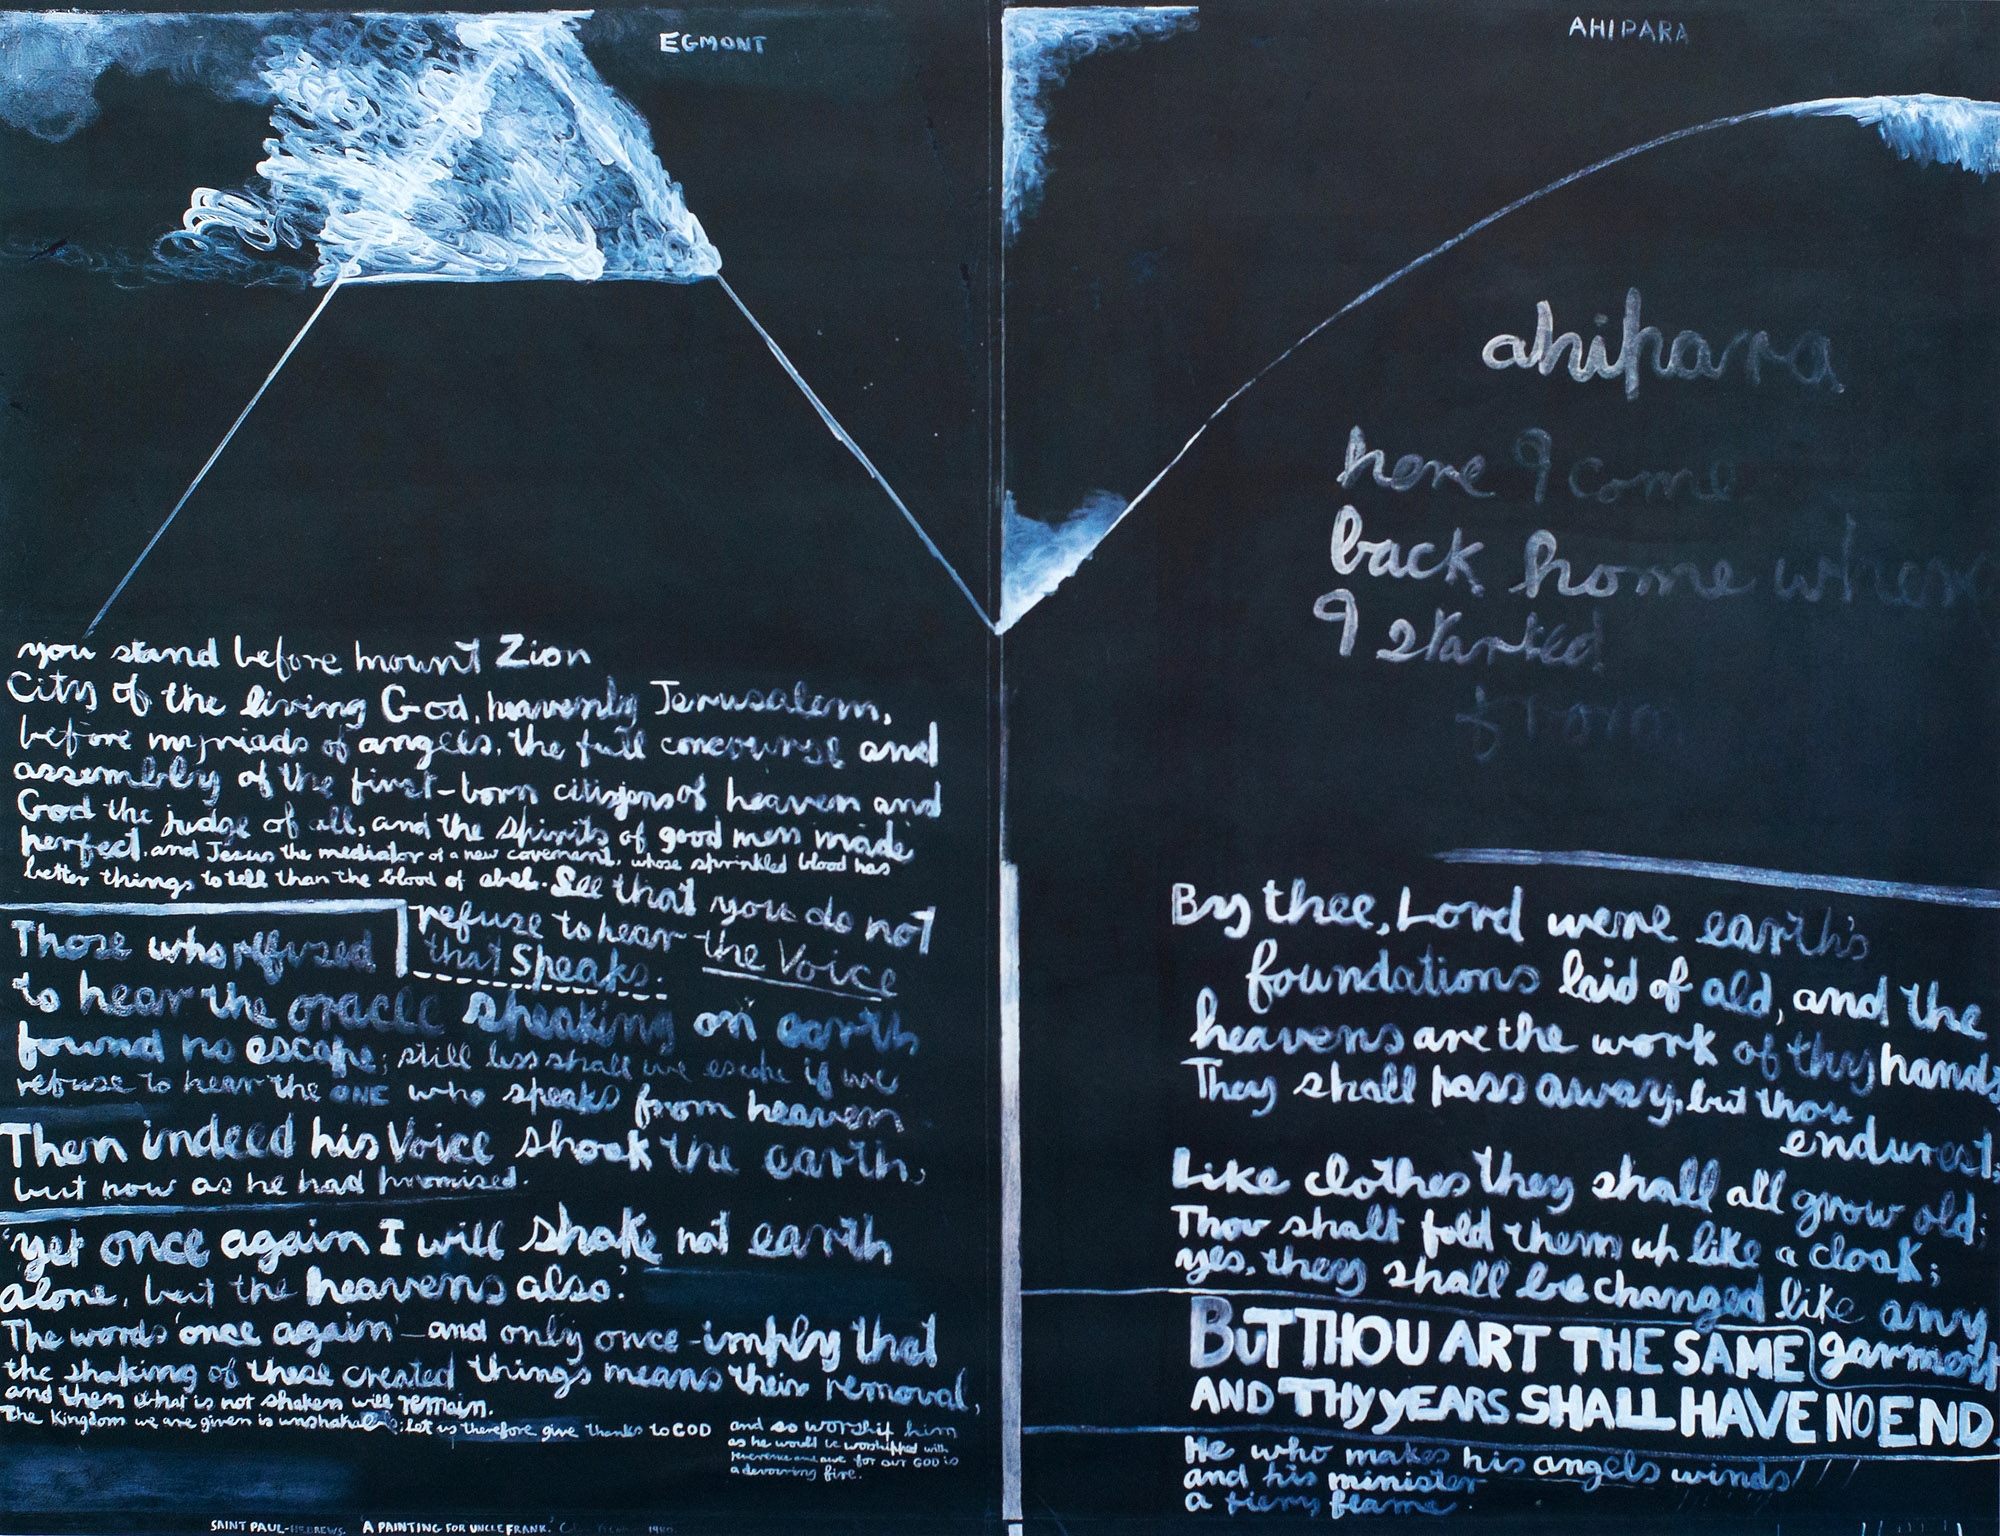 EGMONT
you stand before mount Zion
City of the living God, heavenly Jerusalem,
before myriads of angels, the full concourse and
assembly of the first-born citizens of heaven and
God the judge of all, and the spirits of good men made
perfect, and Jesus the mediator of a new covenant, whose sprinkled blood has
better things to tell than the blood of abel. See that you do not
refuse to hear the Voice
that Speaks.
Those who refused
to hear the oracle speaking on earth
found no escape; still less shall we escape if we
refuse to hear the ONE who speaks from heaven
Then indeed his Voice shook the earth,
but now as he had promised.
'yet once again I will shake not earth
alone, but the heavens also.'
The words 'once again' - and only once - imply that
the shaking of these created things means their removal,
and then what is not shaken will remain.
The Kingdom we are given is unshakable; let us therefore give thanks to GOD
and so worship him
as he would be worshipped with
reverence and awe for our GOD is
a devouring fire.
SAINT PAUL-HEBREWS. 'A PAINTING FOR UNCLE FRANK.' 1980
AHIPARA
ahipara
here I come
back home where
I started
from
By thee, Lord were earth's
foundations laid of old, and the
heavens are the work of thy hands
They shall pass away, but thou
endurest;
Like clothes they shall all grow old;
Thou shalt fold them up like a cloak;
yes, they shall be changed like any
garment
BUT THOU ART THE SAME
AND THY YEARS SHALL HAVE NO END.
He who makes his angels winds
and his minister
a fiery flame